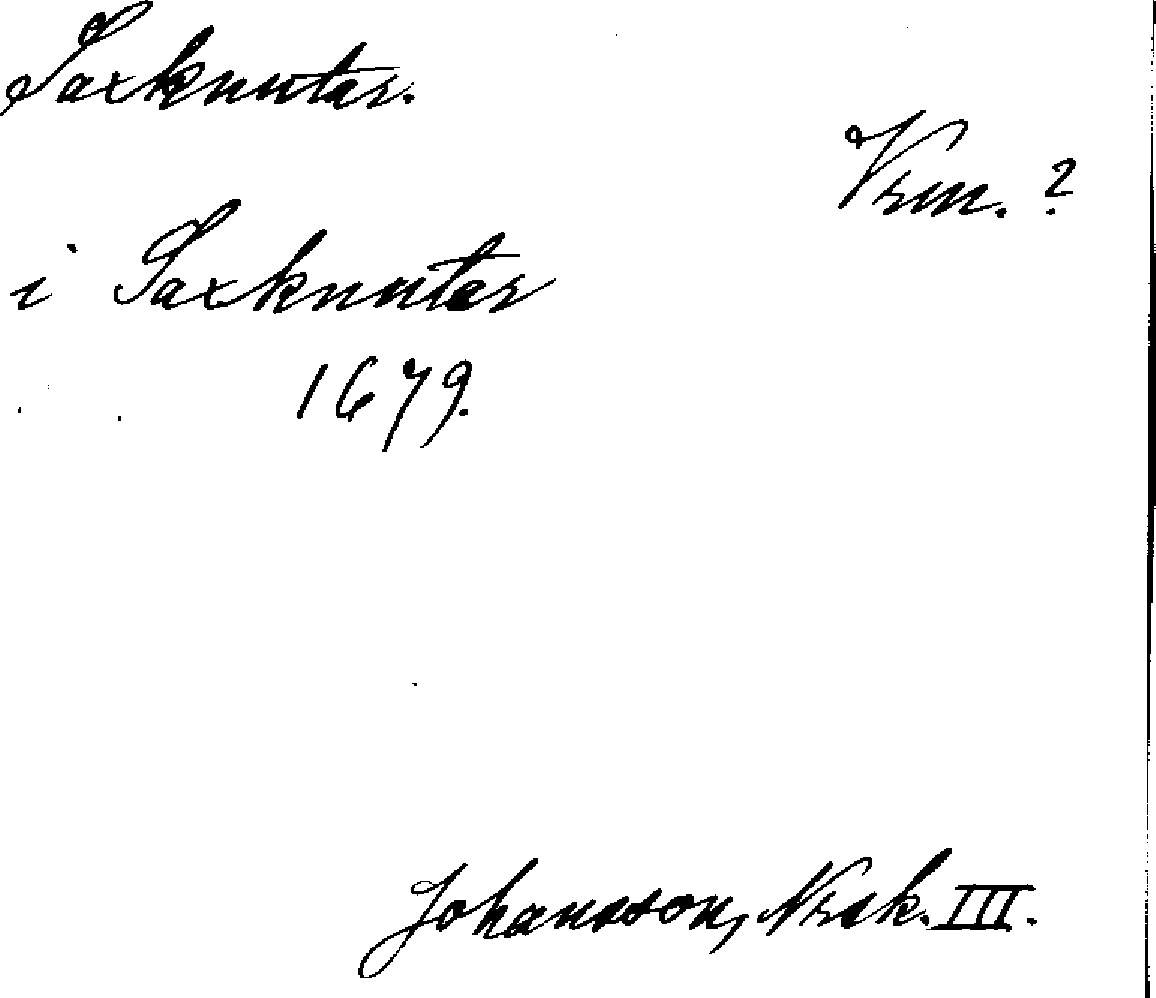 Saxknuter.
Vrm. ?
i Saxknuter
1679.
Johansson, Nrsk. III.